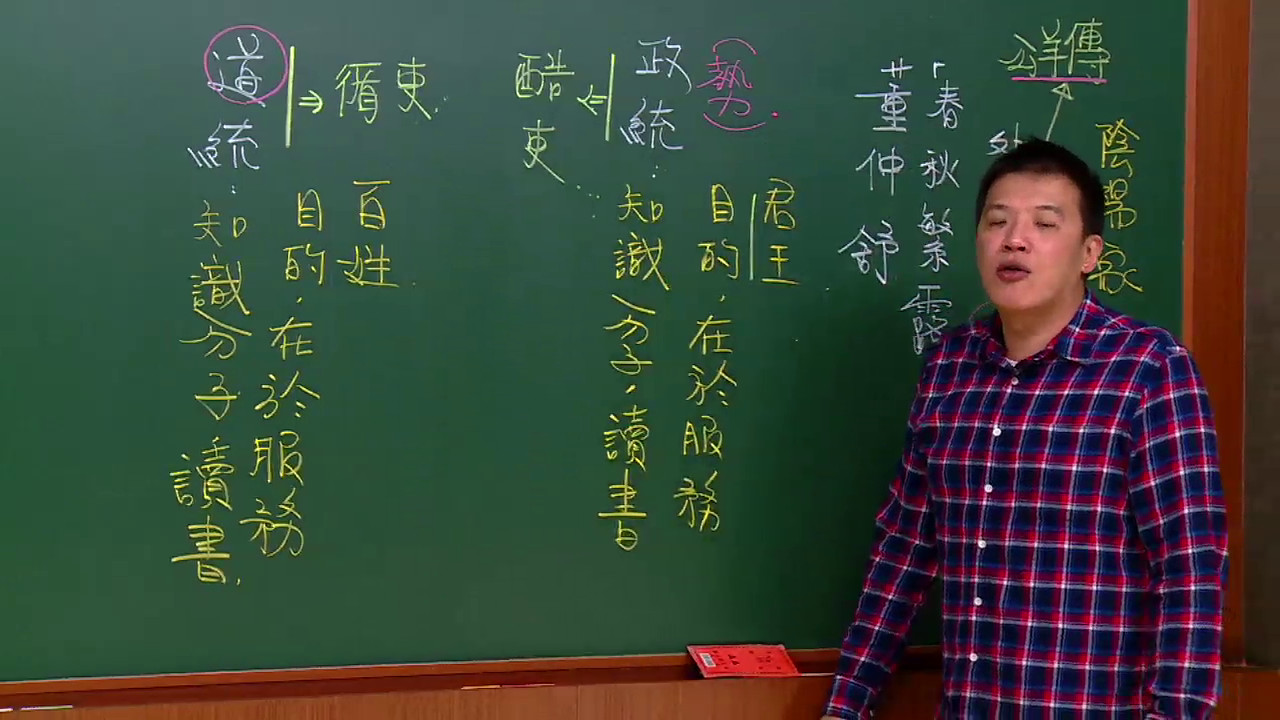 公羊傳
陰陽家
「春秋繁露
董仲舒
政統
(勢)
酷吏
知識分子,讀書
目的,在於服務
君王
道統
循吏
知識分子讀書
目的,在於服務
百姓